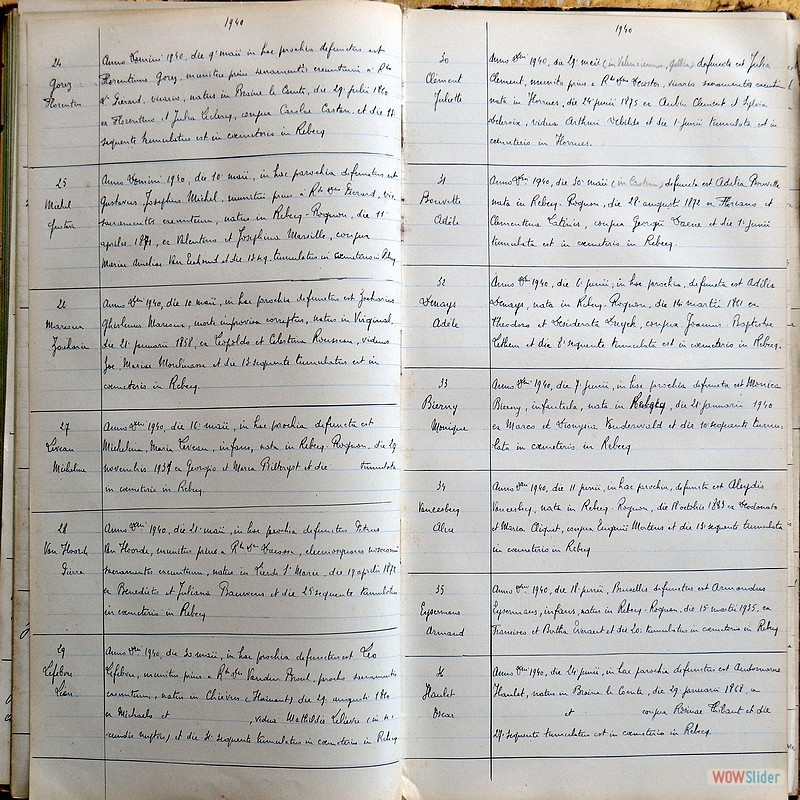 1940
24
Gorez
Florentin
Anno Domini 1940, die 9ª maii in hac prochia defunctus est
Florentinus Gorez, munitus prius sacramentis exeuntium a Rdo
Gerard, vicario, natus in Braine le Comte, die 29 julii 1860
ex Florentino et Julia Leclercq, conjux Carolae Castan, et die 11
sequente tumulatus est in coemeterio in Rebecq
25
Michel
Gustave
Anno Domini 1940, die 10ª maii, in hac parochia defunctus est
Gustavus Josephus Michel, munitus prius a Rdo Dno Gerard, vic.
sacramentis exeuntium, natus in Rebecq-Rognon, die 11ª
aprilis 1871, ex Valentino et Josephina Marseille, conjux
Mariae Ameliae Van Eeckhout et die 13 sq. tumulatus in coemeterio in Rebecq
26
Marcoux
Zacharie
Anno Dni 1940, die 10 maii, in hac parochia defunctus est Zacharias
Ghislenus Marcoux, morte improvisa correptus, natus in Virginal,
die 21ª januarii 1858, ex Leopoldo et Celestina Rousseau, viduus
Jos. Mariae Moulinasse et die 13 sequente tumulatus est in
coemeterio in Rebecq.
27
Leveau
Micheline
Anno Dni 1940, die 16 maii, in hac prochia defuncta est
Michelina Maria Leveau, infans, nata in Rebecq-Rognon, die 29
novembris 1937 ex Georgio et Maria et die tumulata
in coemeterio in Rebecq.
28
Van Hoorde
Pierre
Anno Dni 1940, die 21ª maii, in hac prochia defunctus Petrus
Van Hoorde, munitus prius a Rdo Dno
sacramentis exeuntium, natus in Lierde Ste Marie, die 19 aprilis 1872
ex Benedicto et Juliana Bauwens et die 25 sequente tumulatus
in coemeterio in Rebecq
29
Lefebvre
Léon
Anno Dni 1940, die 30 maii, in hac prochia defunctus est Leo
Lefebvre, munitus prius a Rdo Dno Vanden parocho sacramentis
exeuntium, natus in Chièvres (Hainaut) die 29 augusti 1860
ex Michaele et , viduus Mathildis Lelièvre (in se-
cundis nuptiis) et die 31 sequente tumulatus in coemeterio in Rebecq
1940
30
Clement
Juliette
Anno Dni 1940, die 29 maii (in Valenciennes, Gallia) defuncta est Julia
Clement, munita prius a Rdo Dno vicario sacramentis exeuntium
nata in Hornues, die 24 junii 1875 ex Aculin Clement et Sylvia
Delcroix, vidua Arthuri et die 1 junii tumulata est in
coemeterio in Hornues.
31
Bouville
Adèle
Anno Dni 1940, die 30ª maii (in Castrum) defuncta est Adelia Bouville
nata in Rebecq-Rognon, die 28ª augusti 1872 ex Floriano et
Clementina Latinis, conjux Georgii Daene et die 1ª junii
tumulata est in coemeterio in Rebecq.
32
Denays
Adèle
Anno Dni 1940, die 6 junii, in hac prochia, defuncta est Adelia
Denays, nata in Rebecq-Rognon, die 14 martii 1861 ex
Theodoro et Desiderata conjux Joannis Baptistae
Lethem et die 8ª sequente tumulata est in coemeterio in Rebecq.
33
Bierny
Monique
Anno Dni 1940, die 7 junii, in hac prochia defuncta est Monica
Bierny, infantula, nata in Rebecq, die 21 januarii 1940
ex Marco et Dionysia Vanderwald et die 10 sequente tumu-
lata in coemeterio in Rebecq
34
Vancesbecq
Alice
Anno Dni 1940, die 11 junii, in hac prochia, defuncta est Aleydis
Vancesbecq, nata in Rebecq-Rognon, die 18 octobris 1883 ex Deodonato
et Maria Cliquet, conjux Eugenii Mertens et die 13 sequente tumulata
in coemeterio in Rebecq
35
Eypermans
Armand
Anno Dni 1940, die 18ª junii, Bruxellis defunctus est Armandus
Eypermans, infans, natus in Rebecq-Rognon, die 15 martii 1935, ex
Francisco et Bertha Evraert et die 20ª tumulatus in coemeterio in Rebecq
36
Haulet
Oscar
Anno Dni 1940, die 24 junii, in hac parochia defunctus est Audomarus
Haulet, natus in Braine le Comte, die 29 januarii 1868, ex
et conjux Reginae Thibaut et die
27ª sequente tumulatus est in coemeterio in Rebecq.
WOWSlider